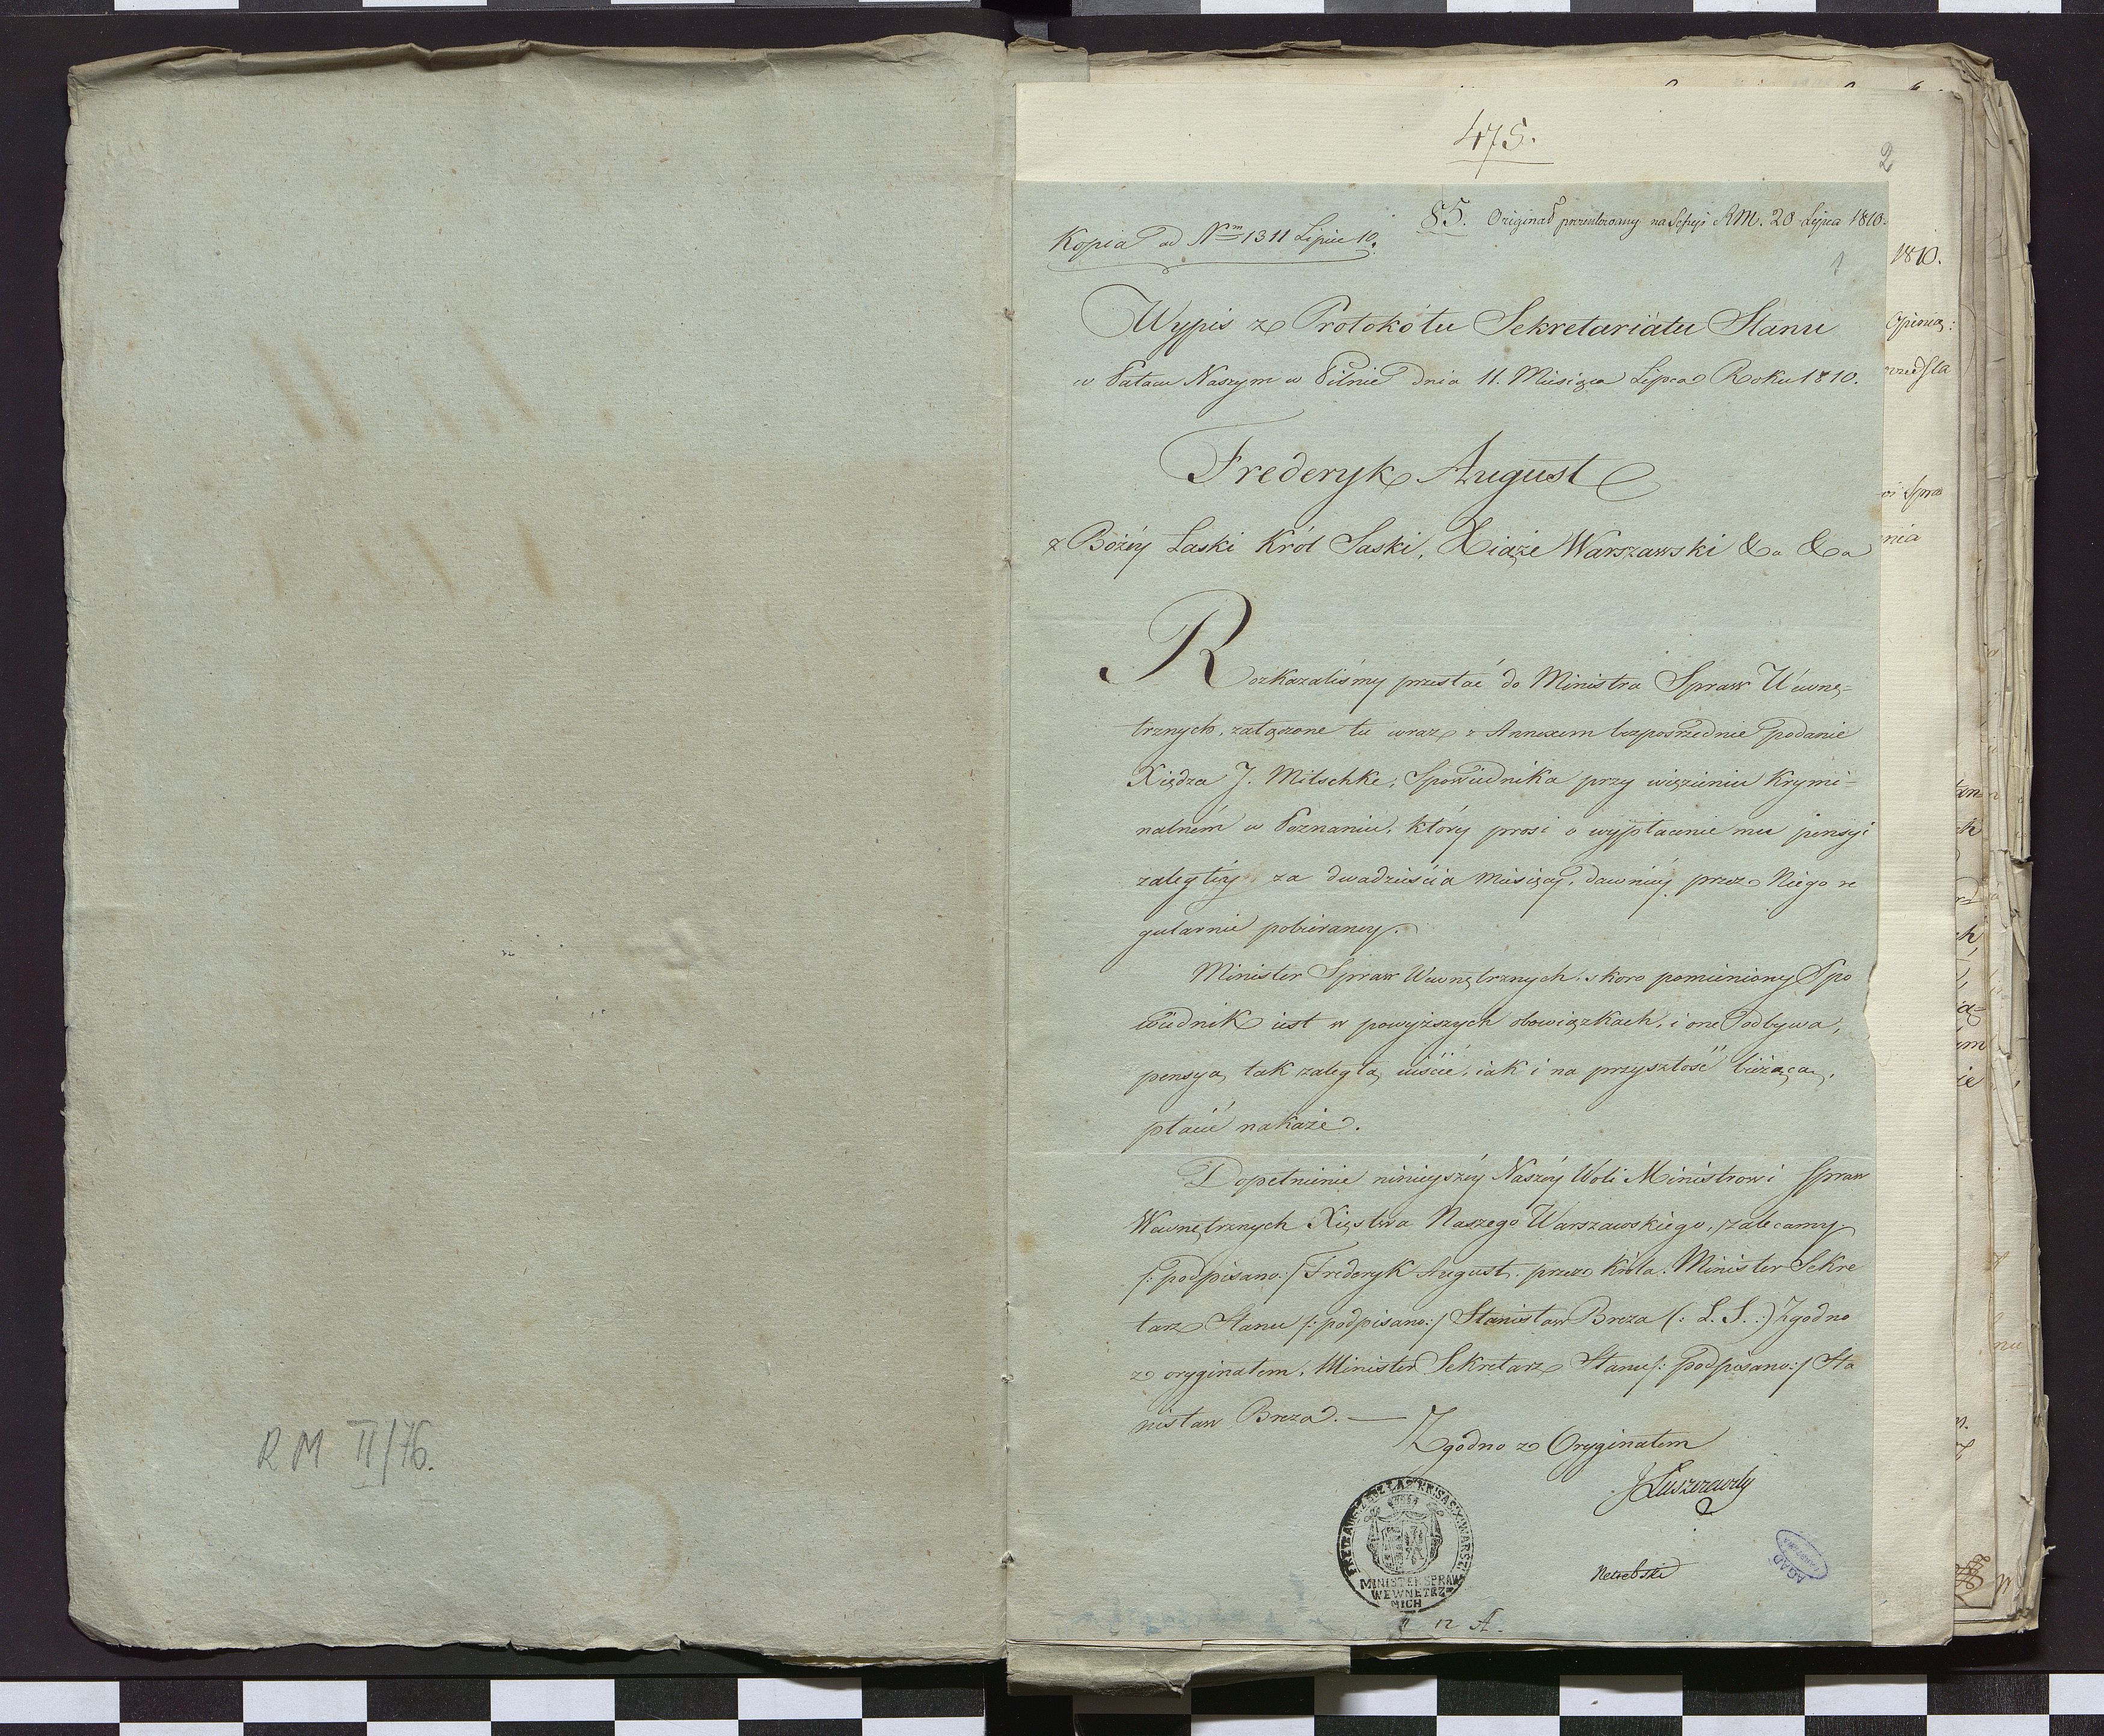 475.
2
85. Originał prezentowany na Sessyi RM. 20 Lipca 1810.
Kopia ad Nrm 1311 Lipiec 10.
1
Wypis z Protokołu Sekretariatu Stanu
w Pałacu Naszym w Pilnie dnia 11. Miesiąca Lipca Roku 1810.
Frederyk August
z Bożéy Łaski Król Saski, Xiąże Warszawski &a &a
Rozkazaliśmy przesłać do Ministra Spraw Wewnę=
trznych, załączone tu wraz z Annexem bezpośrednie podanie
Xiędza J. Mitschke, Spowiednika przy więzieniu Krymi=
nalném w Poznaniu, który prosi o wypłacenie mu pensyi
zaległéy za dwadzieścia miesięcy, dawniéy przez Niego re
gularnie pobieraney.
Minister Spraw Wewnętrznych, skoro pomieniony Spo
wiednik iest w powyższych obowiązkach, i one odbywa,
pensyą tak zaległą uiścić, iak i na przyszłość bieżącą,
płacić nakaże.
Dopełnienie ninieyszéy Naszéy Woli Ministrowi Spraw
Wewnętrznych Xięstwa Naszego Warszawskiego, zalecamy
/: podpisano :/ Frederyk August. przez Króla. Minister Sekre
tarz Stanu /: podpisano :/ Stanisław Breza (: L. S. :) Zgodno
z oryginałem, Minister Sekretarz Stanu /: podpisano :/ Sta
nisław Breza. —
Zgodno z Oryginałem
J Łuszczewsky
MINISTER SPRAW
WEWNĘTRZ
NYCH
AGAD
RM II/76.
1810.
Opinią: